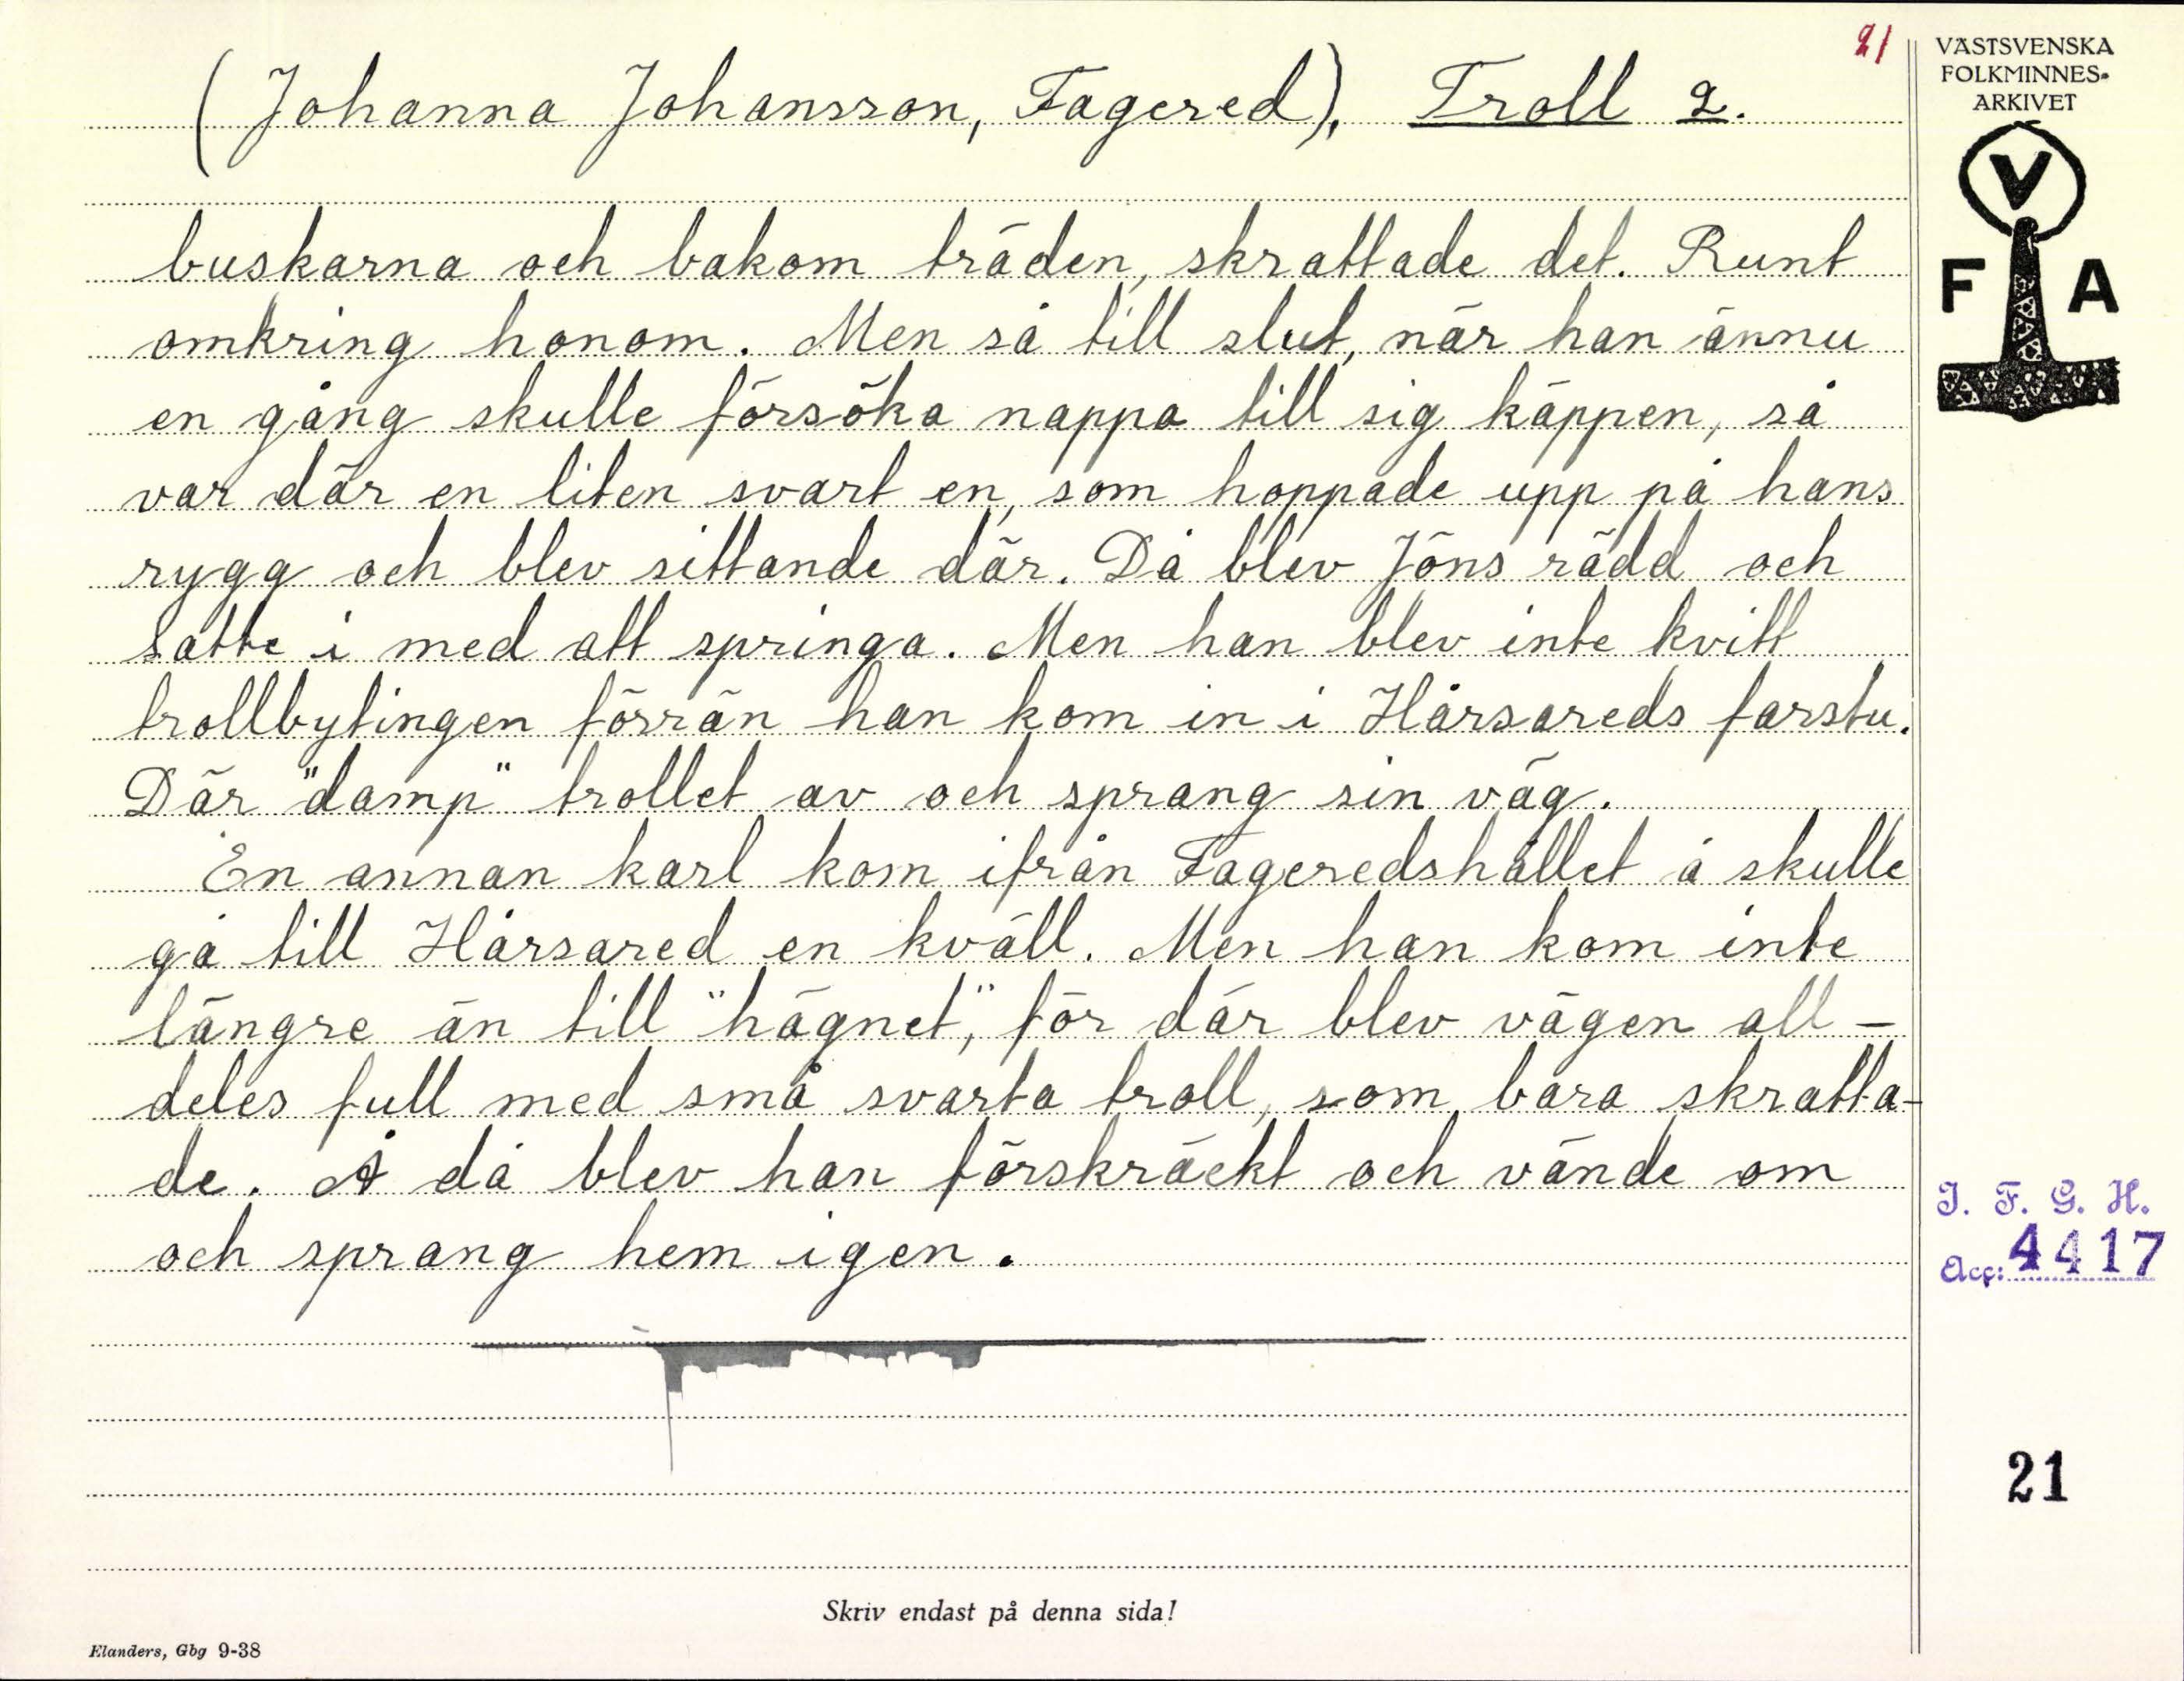 21
(Johanna Johansson, Fagered), Troll 2.
buskarna och bakom träden, skrattade det. Runt
omkring honom. Men så till slut, när han ännu
en gång skulle försöka nappa till sig käppen, så
var där en liten svart en, som hoppade upp på hans
rygg och blev sittande där. Då blev Jöns rädd och
satte i med att springa. Men han blev inte kvitt
trollbytingen förrän han kom in i Hårsareds farstu.
Där "damp" trollet av och sprang sin väg.
En annan karl kom ifrån Fageredshållet å skulle
gå till Hårsared en kväll. Men han kom inte
längre än till "hägnet", för där blev vägen all-
deles full med små svarta troll, som bara skratta-
de. Å då blev han förskräckt och vände om
och sprang hem igen.
Skriv endast på denna sida!
Elanders, Gbg 9-38
VÄSTSVENSKA
FOLKMINNES-
ARKIVET
V
F A
I. F. G. H.
Acc: 4417
21